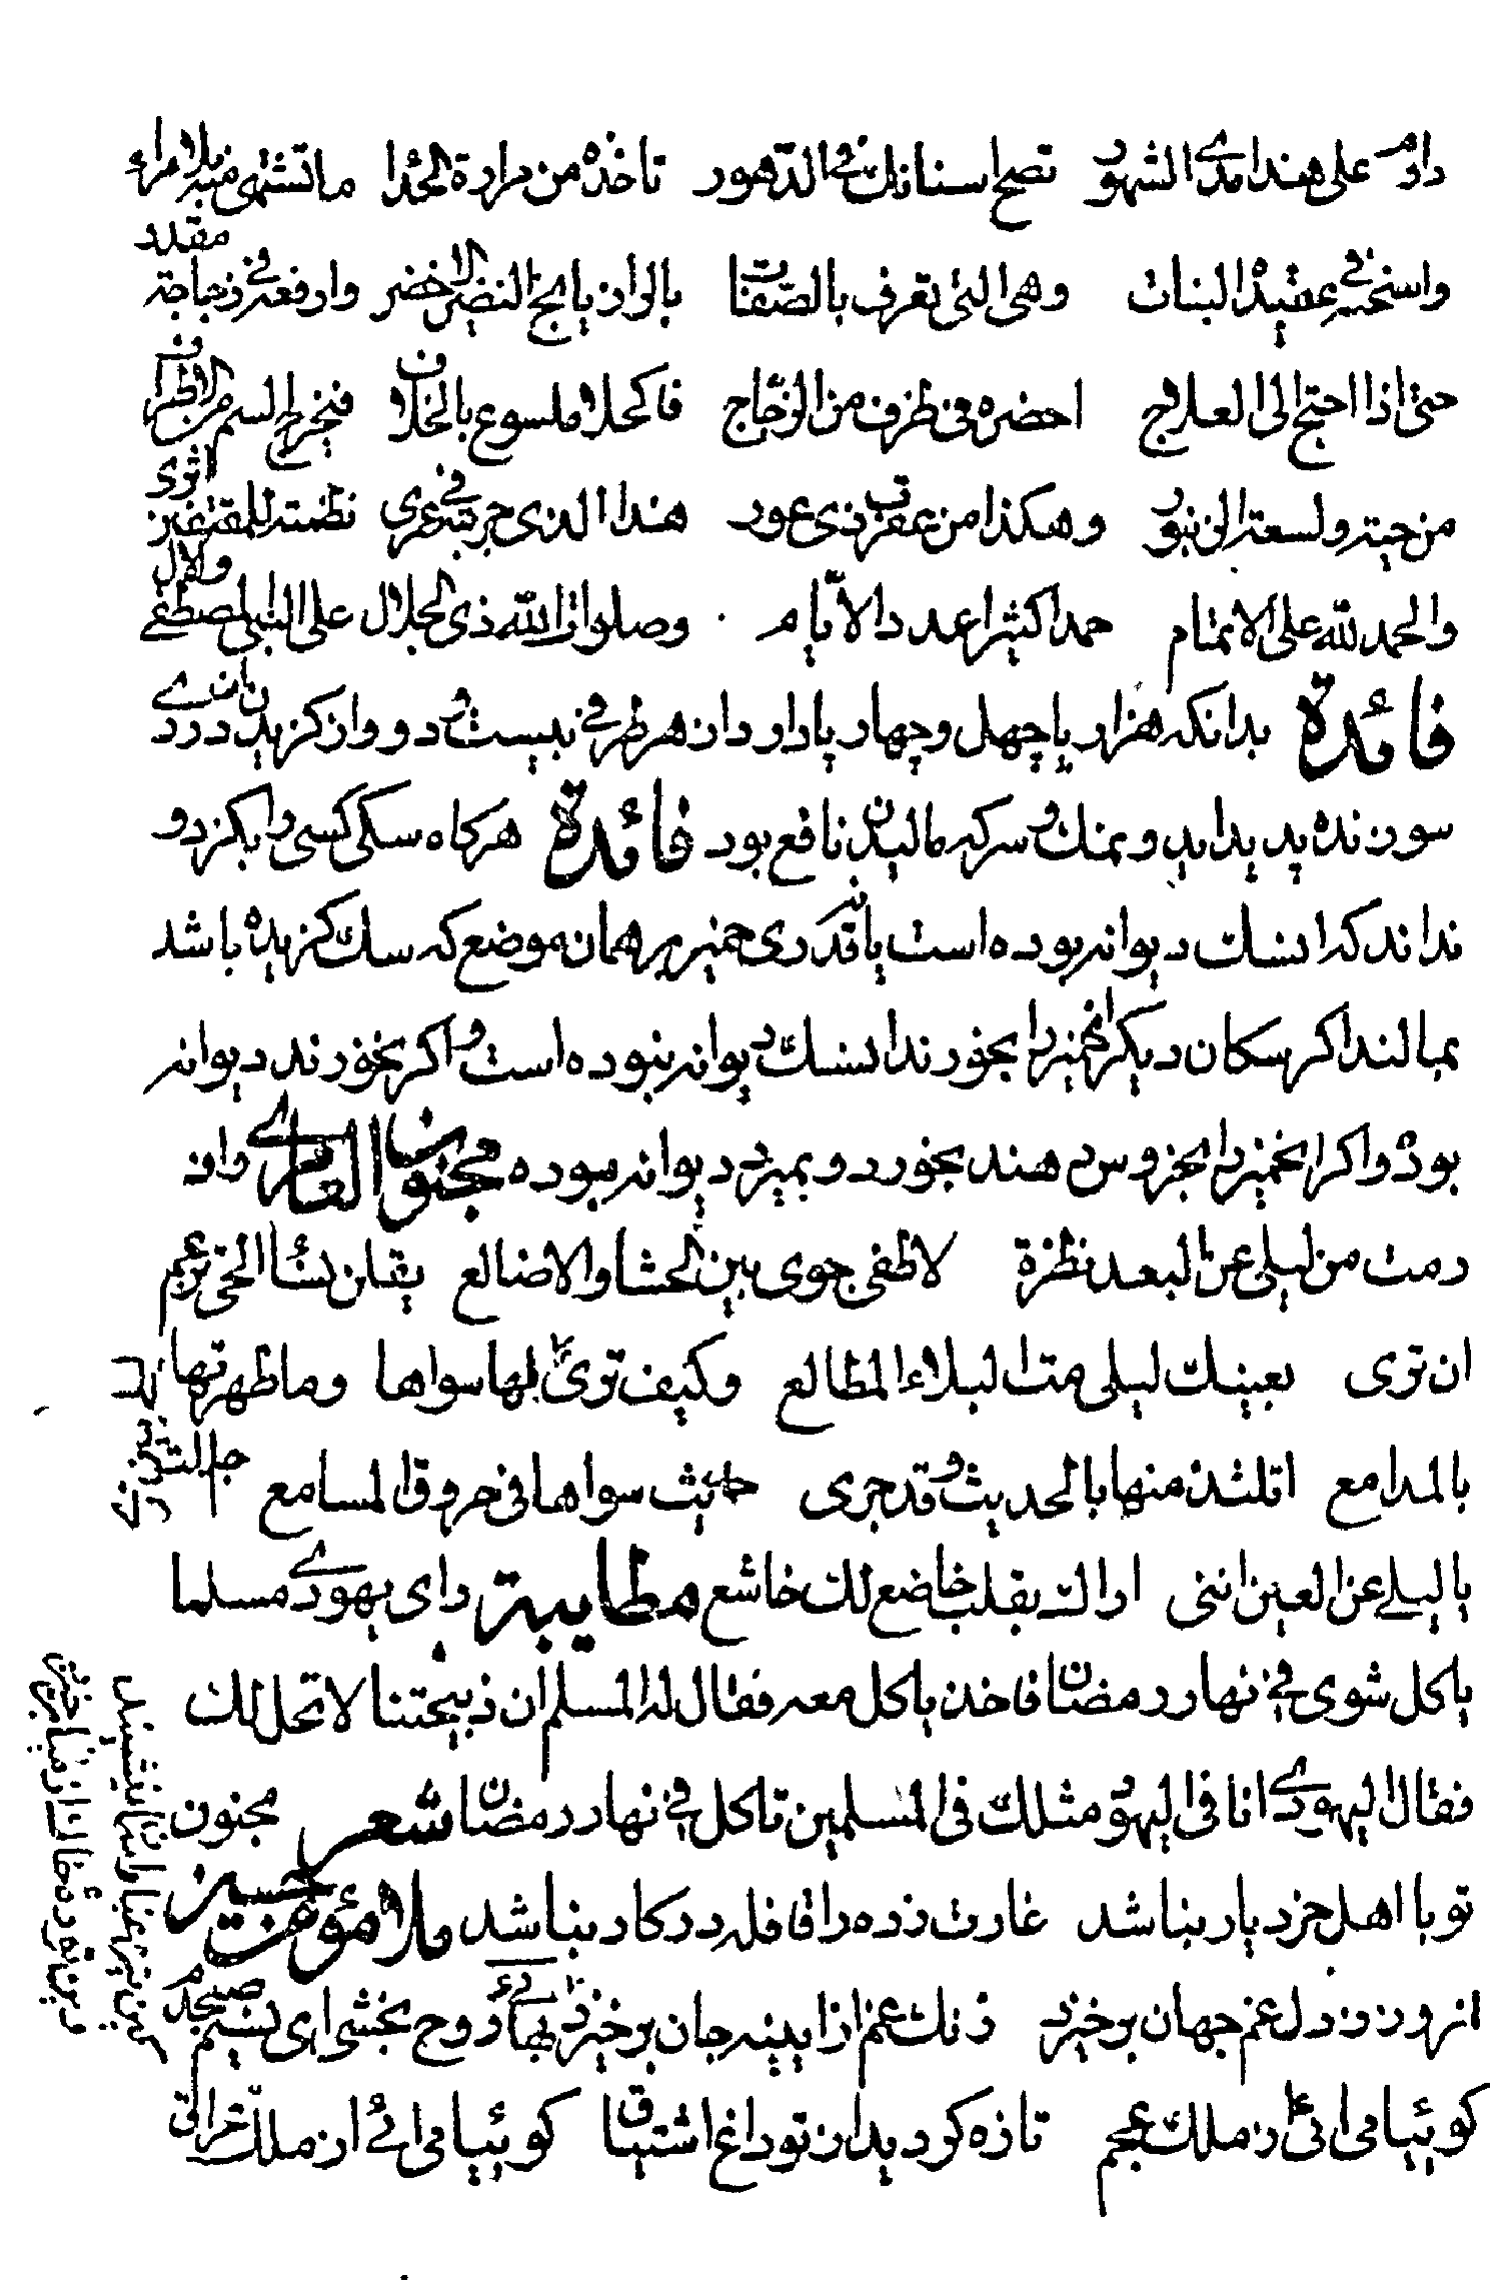 داوم على هذا مدى الشهور تصح اسنانك فى الدهور تاخذه من مرارة الحدا ما تشتهى منه بلا مراء
واسحقه فى عقيد البنات وهى التى تعرف بالصفات بالرازيانج النضير الاخضر وارفعه فى زجاجة مقدر
حتى اذا احتج الى العلاج احضره فى ظرف من الزجاج فاكحل الملسوع بالخلاف فيخرج السم من الاطراف
من حية ولسعة الزنبور وهكذا من عقرب ذى عور هذا الذى جربته فى عمرى نظمته للمقتفين اثرى
والحمد لله على الاتمام حمدا كثيرا عدد الايام وصلوات الله ذى الجلال على النبى المصطفى والال
فائدة بدانكه هزارپا چهل و چهار پا دارد از هر طرفى بيست و دو و از گزيدن او دردى
سوزنده پديد ايد و نمك و سركه ماليدن نافع بود فائدة هرگاه سگى كسى را بگزد و
نداند كه ان سگ ديوانه بوده است يا نه قدرى خمير بر همان موضع كه سگ گزيده باشد
بمالند اگر سگان ديگر ان خمير را بخورند ان سگ ديوانه نبوده است و اگر نخورند ديوانه
بوده و اگر ان خمير را بخروس دهند بخورد و بميرد ديوانه بوده مجنون العامرى وان
رمت من ليلى عن البعد نظرة لاطفى جوى بين الحشا والاضالع يقلن نساء الحى ترجم
ان ترى بعينك ليلى مت الداء المطالع وكيف ترى ليلى بعين ترى بها سواها وما طهرتها
بالمدامع اتلتذ منها بالحديث وقد جرى حديث سواها فى خروق المسامع
يا ليلى عن العين اننى اراك بقلب خاضع لك خاشع مطايبة راى يهودى مسلما
ياكل شوى فى نهار رمضان فاخذ ياكل معه فقال له المسلم ان ذبيحتنا لا تحل لك
فقال اليهودى انا فى اليهود مثلك فى المسلمين تاكل فى نهار رمضان شعر مجنون
تو با اهل خرد يار نباشد غارت زده را قافله در كار نباشد ملا مؤمن حسين
از ورد دل غم جهان برخيزد زنك غم از اينه جان برخيزد بهائى روح بخشى اى نسيم صبحدم
گوئيا مى ائى از ملك عجم تازه گرديد از تو داغ اشتياق گوئيا مى ائى از ملك عراق